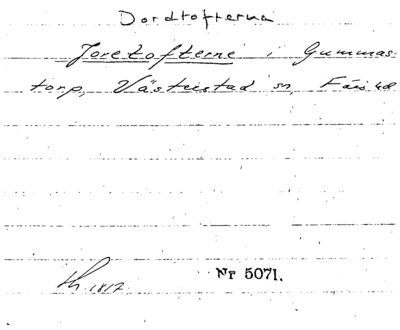 Dordtofterna
Joretofterne i Gummas-
torp, Västrestad sn, Färs hd
th 1817
Nr 5071.